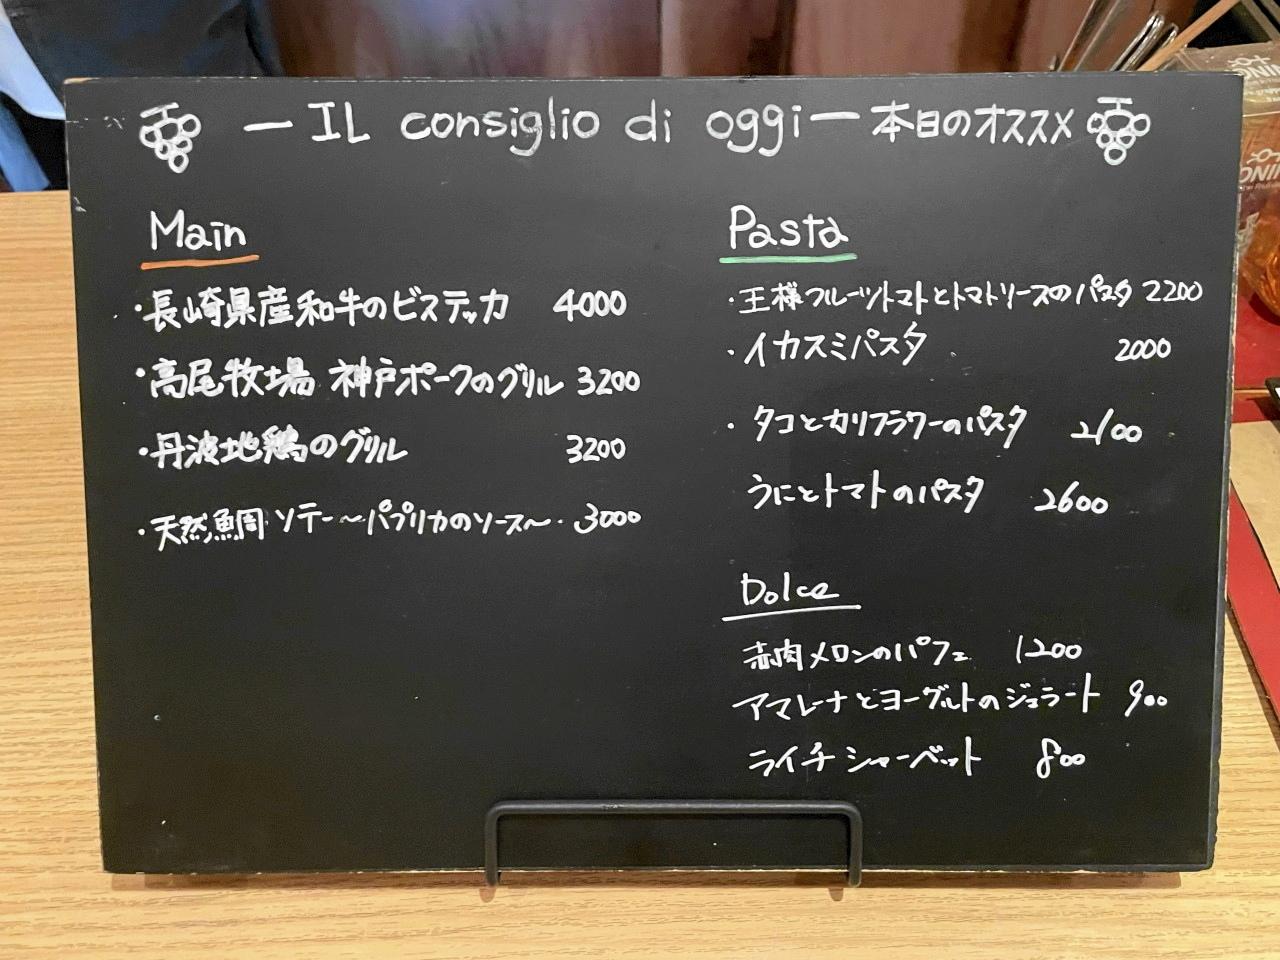 ー IL consiglio di oggi ー 本日のオススメ
Main
・長崎県産和牛のビステッカ 4000
・高尾牧場 神戸ポークのグリル 3200
・丹波地鶏のグリル 3200
・天然鯛 ソテー〜パプリカのソース〜・3000
Pasta
・王様フルーツトマトとトマトソースのパスタ 2200
・イカスミパスタ 2000
・タコとカリフラワーのパスタ 2100
うにとトマトのパスタ 2600
Dolce
赤肉メロンのパフェ 1200
アマレーナとヨーグルトのジェラート 900
ライチシャーベット 800